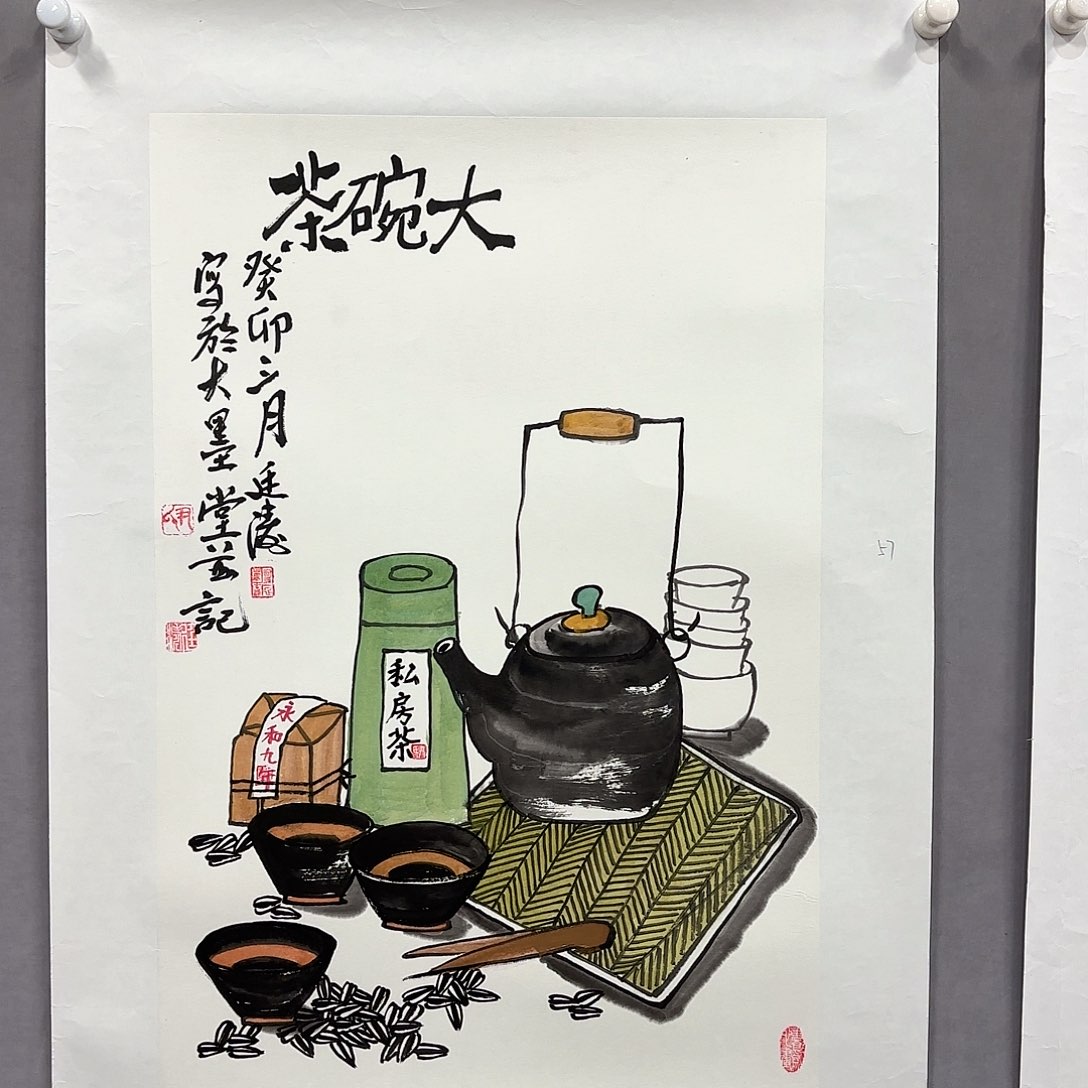 大碗茶
癸卯三月廷濤
寫於大墨堂並記
私房茶
永和九年
57